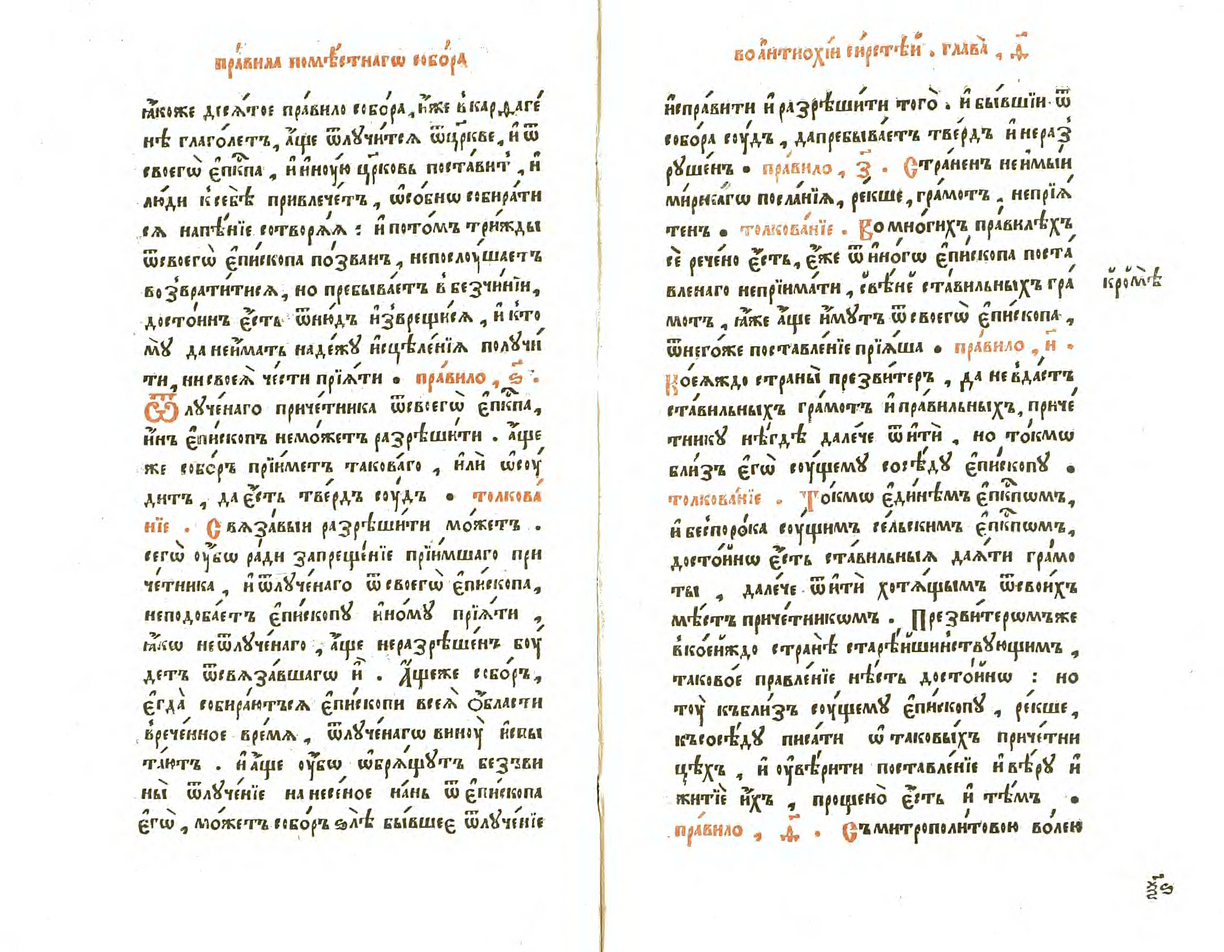 пра́вила помѣ́стнагѡ собо́ра
ꙗ҆́коже десѧ́тое пра́вило собо́ра, и҆́же в карѳаге́
нѣ глаго́летъ, а҆́ще ѿлꙋчи́тсѧ ѿ цр҃кве, и҆ ѿ
своегѡ̀ є҆пⷭ҇кпа, и҆ и҆ нꙋ́ю цр҃ковь поста́витъ, и҆
лю́ди к себѣ̀ привлече́тъ, ѡ҆со́бнѡ собира́ти
сѧ на пѣ́нїе сотворѧ́ѧ : и҆ пото́мъ три́жды
ѿ своегѡ̀ є҆пи́скопа по́званъ, непослоуша́етъ
возврати́тисѧ, но пребыва́етъ в безчи́нїи,
досто́инъ є҆́сть ѿню́дъ и҆зврещи́сѧ, и҆ к то
мꙋ̀ да не и҆́мать наде́жꙋ и҆сцѣле́нїѧ полꙋчи́
ти, ни своеѧ̀ че́сти прїѧ́ти . пра́вило, ѕ҃ .
Ѿлꙋче́наго приче́тника ѿ своегѡ̀ є҆пⷭ҇кпа,
и҆́нъ є҆пи́скопъ не мо́жетъ разрѣши́ти . а҆́ще
же собо́ръ прїи́метъ такова́го, и҆лѝ ѡ҆соу́
дитъ, да є҆́сть тве́рдъ соу́дъ . толкова́
нїе . Свѧза́выи разрѣши́ти мо́жетъ .
сегѡ̀ оу҆́бѡ ра́ди запреще́нїе прїи́мшаго при
че́тника, и҆ ѿлꙋче́наго ѿ своегѡ̀ є҆пи́скопа,
неподоба́етъ є҆пи́скопꙋ и҆но́мꙋ прїѧ́ти,
ꙗ҆́кѡ не ѿлꙋче́наго, а҆́ще не разрѣше́нъ боу́
детъ ѿ свѧза́вшагѡ и҆̀ . А҆́ще же собо́ръ,
є҆гда̀ собира́ютьсѧ є҆пи́скопи всеѧ̀ о҆́бласти
в рече́нное вре́мѧ, ѿлꙋче́нагѡ виноу̀ и҆спы
та́ютъ . и҆ а҆́ще оу҆́бѡ ѡ҆брѧ́щꙋтъ без̾ ви
ны̀ ѿлꙋче́нїе нанесе́ное на́нь ѿ є҆пи́скопа
є҆гѡ̀, мо́жетъ собо́ръ ѕлѣ̀ бы́вшее ѿлꙋче́нїе
во а҆нтїохі́и сирстѣ́й . глава̀, д҃
и҆спра́вити и҆ разрѣши́ти того̀ . и҆ бы́вшїи ѿ
собо́ра соу́дъ, да пребыва́етъ тве́рдъ и҆ нераз̾
рꙋше́нъ . пра́вило, з҃ . Стра́ненъ не и҆мы́и
ми́рнскагѡ посла́нїѧ, ре́кше, гра́мотъ, непрїѧ́
тенъ . толкова́нїе . Во мно́гихъ пра́вилѣхъ
сѐ рече́но є҆́сть, є҆́же ѿ и҆но́гѡ є҆пи́скопа поста́
вленаго непрїима́ти, свѣ́не ста́вильныхъ гра́
кромѣ̀
мотъ, ꙗ҆́же а҆́ще и҆́мꙋтъ ѿ своегѡ̀ є҆пи́скопа,
ѿ него́же поставле́нїе прїѧ́ша . пра́вило, и҃ .
Коеѧ́ждо страны̀ презви́теръ, да не вда́стъ
ста́вильныхъ гра́мотъ и҆ пра́вильныхъ, приче́
тникꙋ нѣ́гдѣ дале́че ѿитѝ, но то́кмѡ
бли́зъ є҆гѡ̀ соу́щемꙋ сосѣ́дꙋ є҆пи́скопꙋ .
толкова́нїе . То́кмѡ є҆ди́нѣмъ є҆пⷭ҇кпѡмъ,
и҆ бес поро́ка соу́щимъ се́льскимъ є҆пⷭ҇кпѡмъ,
досто́йнѡ є҆́сть ста́вильныѧ даѧ́ти гра́мо
ты, дале́че ѿитѝ хотѧ́щымъ ѿ свои́хъ
мѣ́стъ приче́тникѡмъ . Презви́терѡмъ же
в ко́ейждо странѣ̀ старѣ́йшинствꙋющимъ,
таково́е правле́нїе нѣ́сть досто́йнѡ : но
тоу̀ къ бли́зъ соу́щемꙋ є҆пи́скопꙋ, ре́кше,
къ сосѣ́дꙋ писа́ти ѡ҆ таковы́хъ приче́тни
цѣхъ, и҆ оу҆вѣ́рити поставле́нїе и҆ вѣ́рꙋ и҆
житїѐ и҆́хъ, проще́но є҆́сть и҆ тѣ́мъ .
пра́вило, д҃ . Съ митрополи́товою во́лею